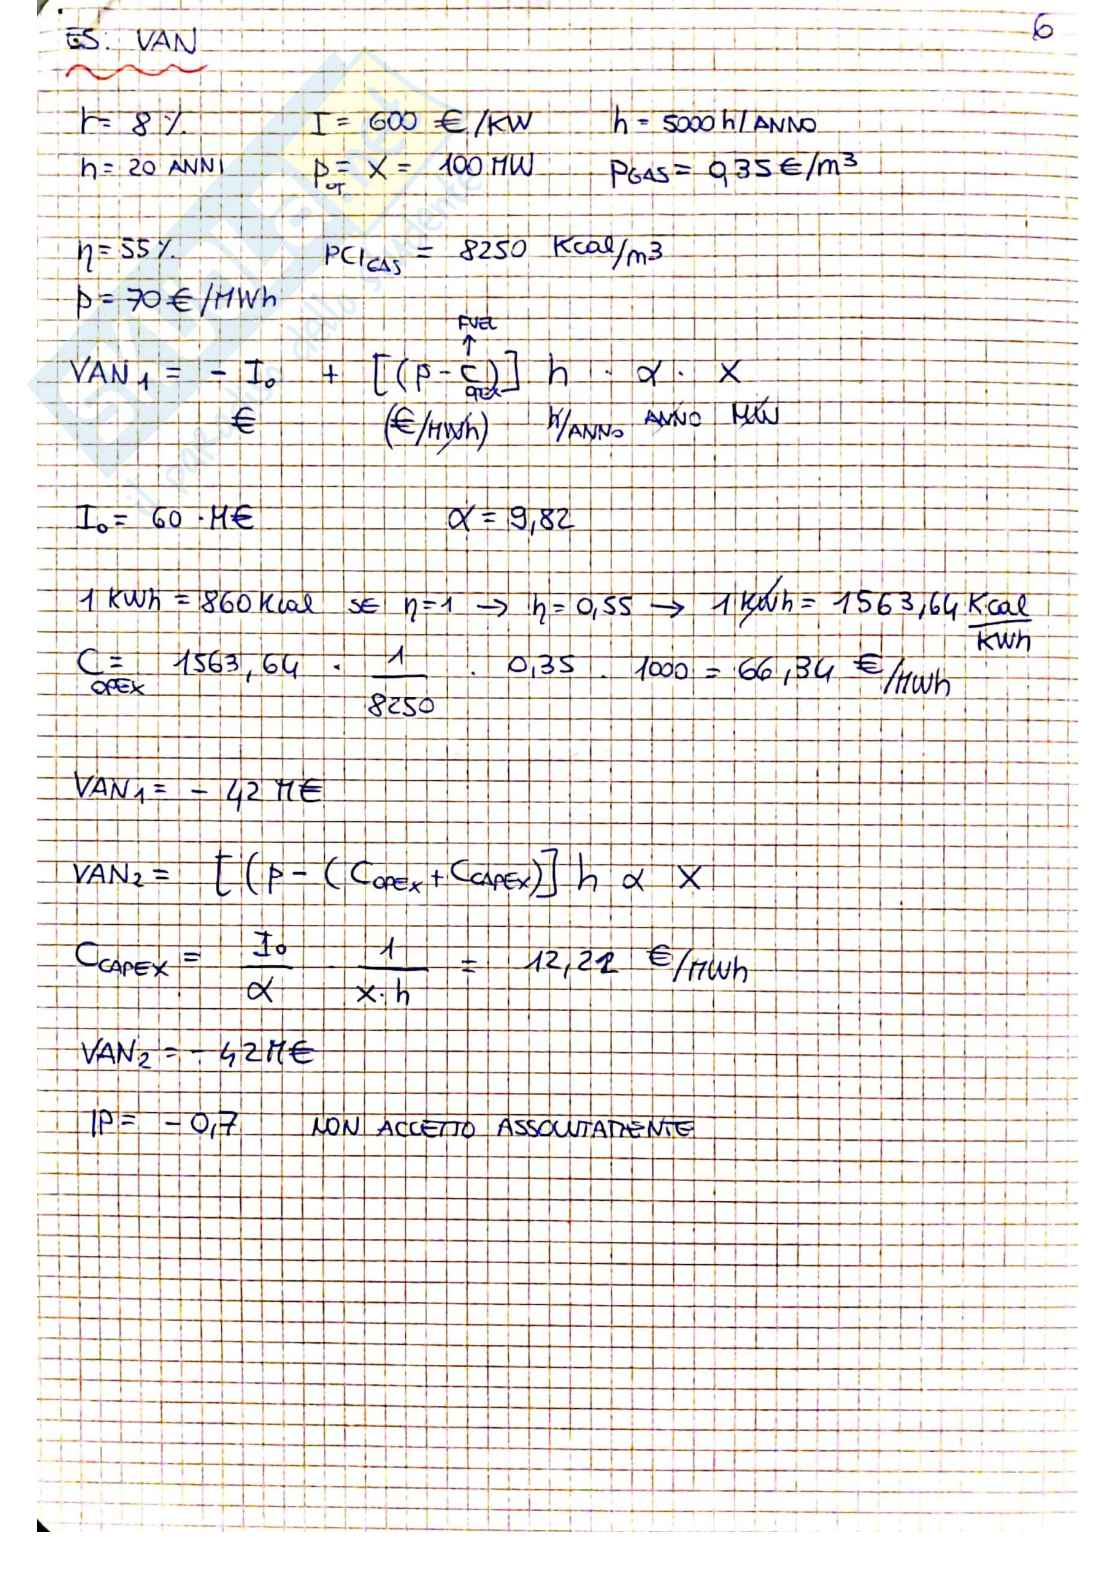 6
ES. VAN
r = 8 %   I = 600 €/KW   h = 5000 h/ANNO
n = 20 ANNI   P_OT = X = 100 MW   PGAS = 0,35 €/m³
η = 55 %   PCI GAS = 8250 Kcal/m³
p = 70 €/MWh
FUEL
↑
VAN₁ = - I₀ + [(p - C_OPEX)] h · α · X
€   (€/MWh)   h/ANNO   ANNO   MW
I₀ = 60 · M€   α = 9,82
1 KWh = 860 Kcal SE η=1 → η=0,55 → 1 KWh = 1563,64 Kcal/KWh
C_OPEX = 1563,64 · 1/8250 · 0,35 · 1000 = 66,34 €/MWh
VAN₁ = - 42 M€
VAN₂ = [(p - (C_OPEX + C_CAPEX)] h α X
C_CAPEX = I₀/α 1/X·h = 12,22 €/MWh
VAN₂ = - 42 M€
IP = - 0,7   NON ACCETTO ASSOLUTAMENTE